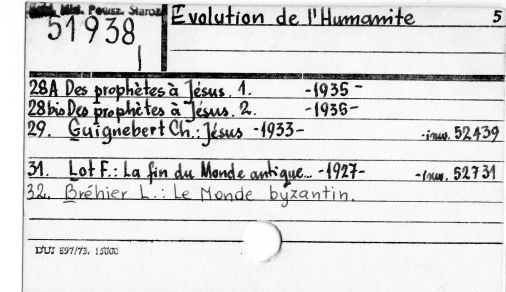 Powsz. Staroż.
Evolution de l'Humanite 5
51938
28A Des prophètes à Jésus. 1. -1935-
28bis Des prophètes à Jésus. 2. -1936-
29. Guignebert Ch.: Jésus -1933- -inw. 52439
31. Lot F.: La fin du Monde antique... -1927- -inw. 52731
32. Bréhier L.: Le Monde byzantin.
DUI 897/73. 15000